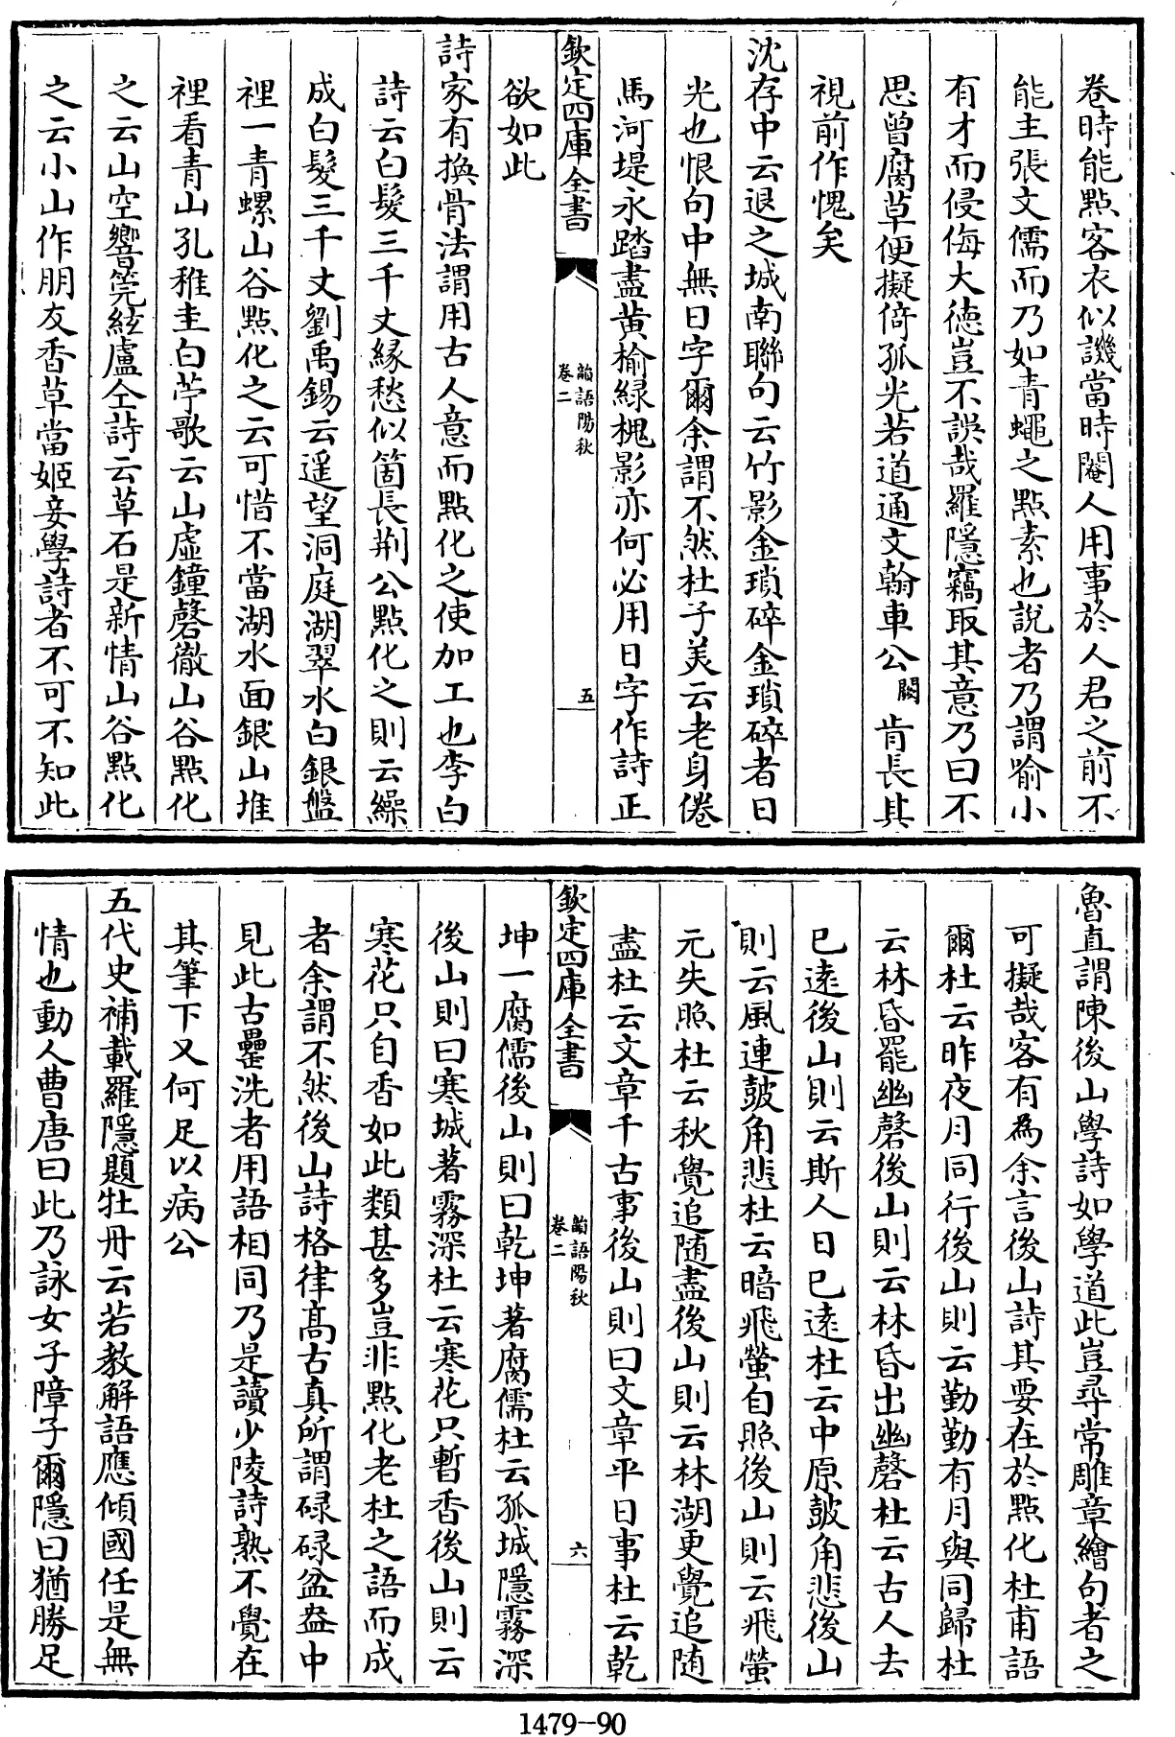 卷時能點客衣似譏當時閹人用事於人君之前不
能主張文儒而乃如青蠅之點素也說者乃謂喻小
有才而侵侮大德豈不誤哉羅隱竊取其意乃曰不
思曾腐草便擬倚孤光若道通文翰車公闕肯長其
視前作愧矣
沈存中云退之城南聯句云竹影金瑣碎金瑣碎者日
光也恨句中無日字爾余謂不然杜子美云老身倦
馬河堤永踏盡黃榆綠槐影亦何必用日字作詩正
欽定四庫全書
韻語陽秋
卷二
五
欲如此
詩家有換骨法謂用古人意而點化之使加工也李白
詩云白髮三千丈緣愁似箇長荆公點化之則云繰
成白髮三千丈劉禹錫云遥望洞庭湖翠水白銀盤
裡一青螺山谷點化之云可惜不當湖水面銀山堆
裡看青山孔稚圭白苧歌云山虛鐘磬徹山谷點化
之云山空響筦絃盧仝詩云草石是新情山谷點化
之云小山作朋友香草當姬妾學詩者不可不知此
魯直謂陳後山學詩如學道此豈尋常雕章繪句者之
可擬哉客有為余言後山詩其要在於點化杜甫語
爾杜云昨夜月同行後山則云勤勤有月與同歸杜
云林昏罷幽磬後山則云林昏出幽磬杜云古人去
已逺後山則云斯人日已逺杜云中原鼓角悲後山
則云風連鼓角悲杜云暗飛螢自照後山則云飛螢
元失照杜云秋覺追随盡後山則云林湖更覺追随
盡杜云文章千古事後山則曰文章平日事杜云乾
欽定四庫全書
韻語陽秋
卷二
六
坤一腐儒後山則曰乾坤著腐儒杜云孤城隱霧深
後山則曰寒城著霧深杜云寒花只暫香後山則云
寒花只自香如此類甚多豈非點化老杜之語而成
者余謂不然後山詩格律髙古真所謂碌碌盆盎中
見此古罍洗者用語相同乃是讀少陵詩熟不覺在
其筆下又何足以病公
五代史補載羅隱題牡丹云若教解語應傾國任是無
情也動人曹唐曰此乃詠女子障子爾隱曰猶勝足
1479-90